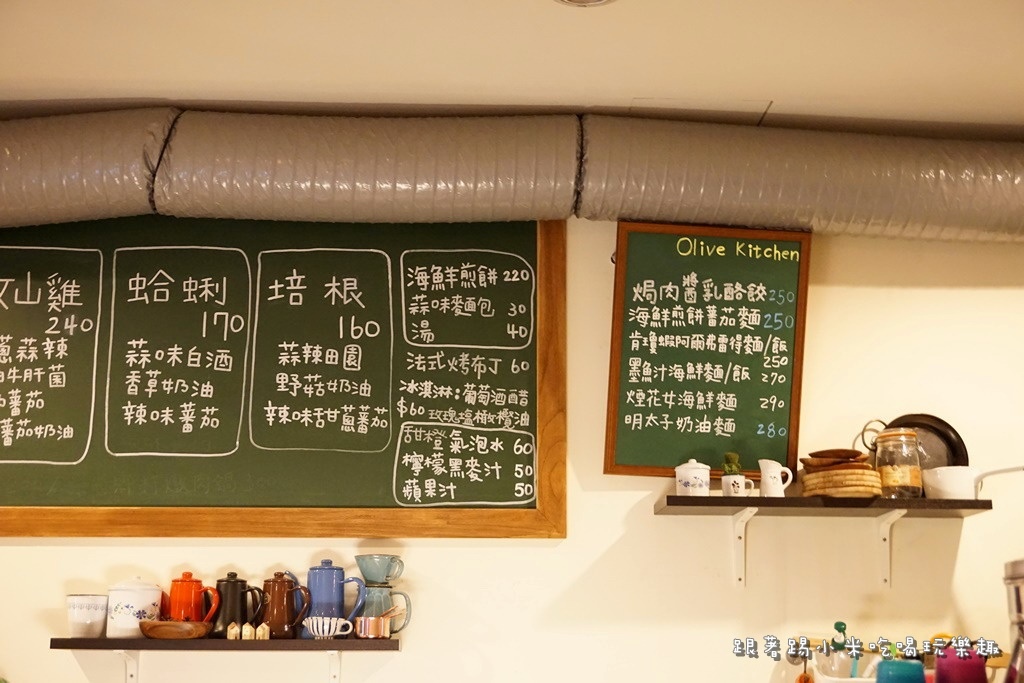 山雞
240
蔥蒜辣
牛肝菌
蕃茄
蕃茄奶油
蛤蜊
170
蒜味白酒
香草奶油
辣味蕃茄
培根
160
蒜辣田園
野菇奶油
辣味甜蔥蕃茄
海鮮煎餅 220
蒜味麵包 30
湯 40
法式烤布丁 60
冰淇淋:葡萄酒醋
$60 玫瑰塩橄欖油
甜橙氣泡水 60
檸檬黑麥汁 50
蘋果汁 50
Olive Kitchen
焗肉醬乳酪餃 250
海鮮煎餅蕃茄麵 250
肯瓊蝦阿爾弗雷得麵/飯
250
墨魚汁海鮮麵/飯 270
煙花女海鮮麵 290
明太子奶油麵 280
跟著踢小米吃喝玩樂趣